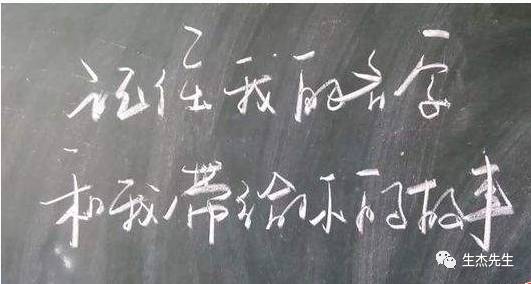 记住我的名字
和我带给你的故事
生杰先生